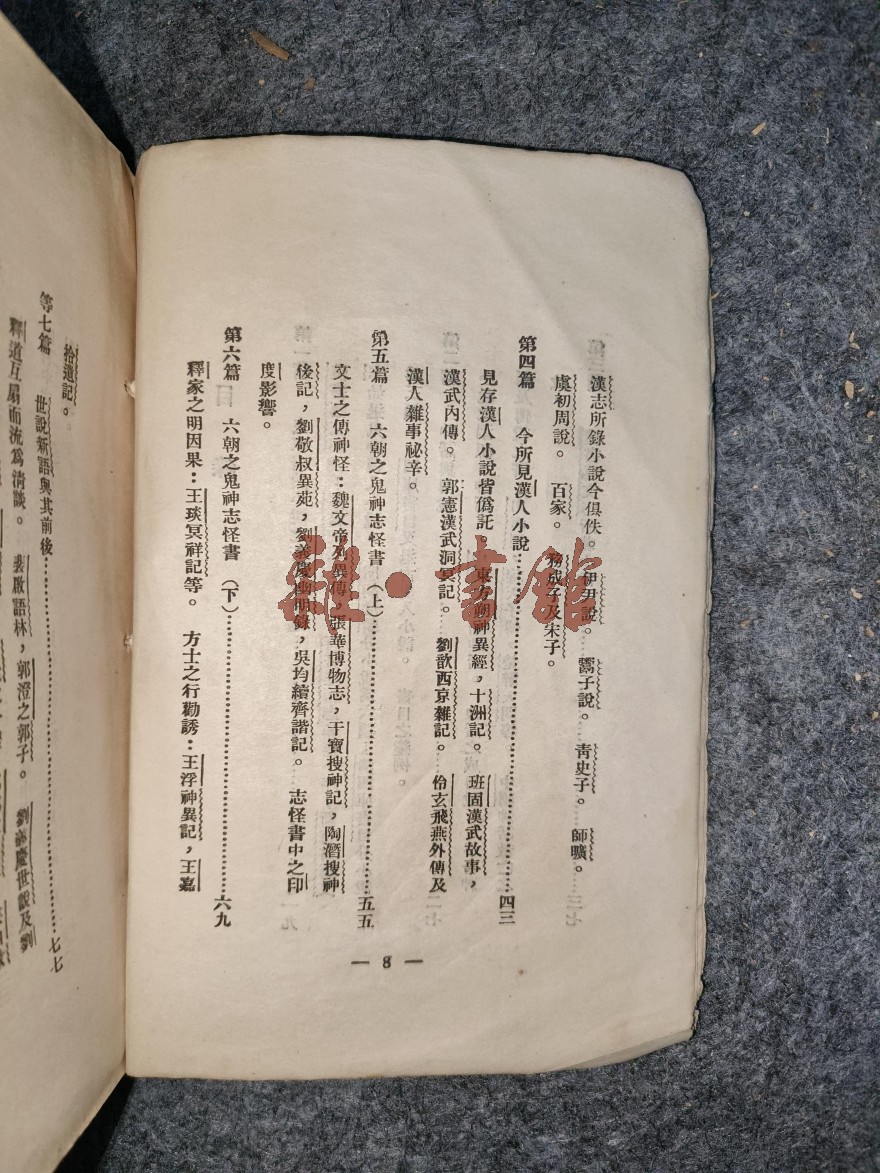 漢志所錄小說今俱佚。 伊尹說。 鬻子說。 青史子。 師曠。
虞初周說。 百家。 務成子及宋子。
第四篇 今所見漢人小說……………………四三
見存漢人小說皆僞託。 東方朔神異經，十洲記。 班固漢武故事，
漢武內傳。 郭憲漢武洞冥記。 劉歆西京雜記。 伶玄飛燕外傳及
漢人雜事祕辛。
第五篇 六朝之鬼神志怪書（上）……………………五五
文士之傳神怪：魏文帝列異傳，張華博物志，干寶搜神記，陶潛搜神
後記，劉敬叔異苑，劉義慶幽明錄，吳均續齊諧記。 志怪書中之印
度影響。
第六篇 六朝之鬼神志怪書（下）……………………六九
釋家之明因果：王琰冥祥記等。 方士之行勸誘：王浮神異記，王嘉
— 8 —
拾遺記。
第七篇 世說新語與其前後……………………七七
釋道互扇而流爲清談。 裴啟語林，郭澄之郭子。 劉義慶世說及劉
雜·書館